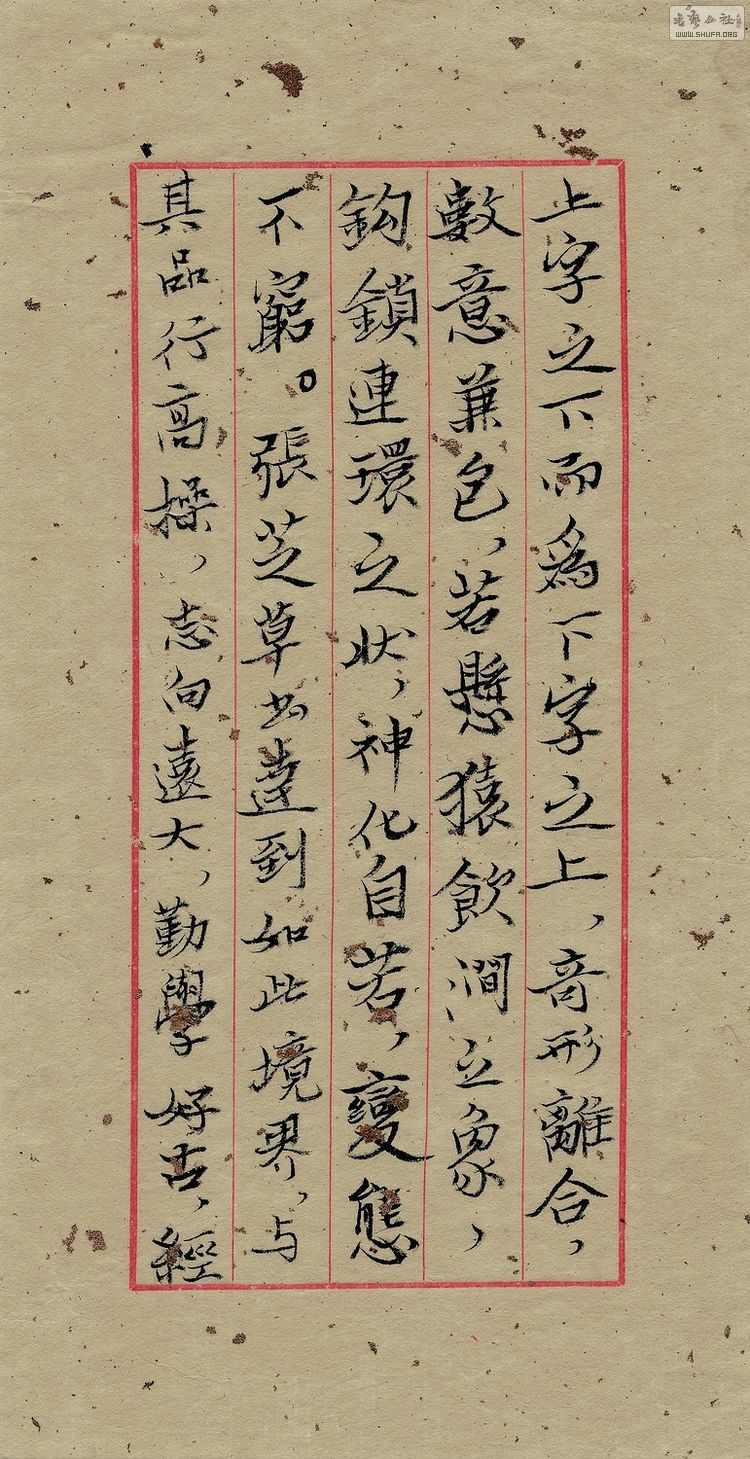 上字之下而為下字之上，奇形離合，
數意兼包，若懸猿飲澗之象，
鉤鎖連環之状，神化自若，變態
不窮。張芝草书達到如此境界，与
其品行高操，志向遠大，勤學好古，經
书藝公社
WWW.SHUFA.ORG